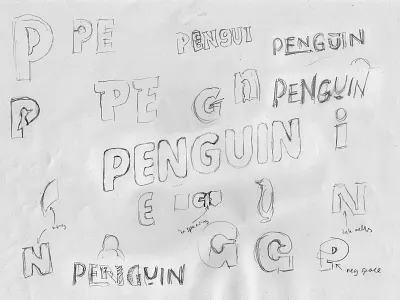 P
PE
PENGUI
PENGUIN
P
PE
G
n
PENGUIN
PENGUIN
i
E
G
N
wing
ink wells
N
PENGUIN
G
G
P
neg space